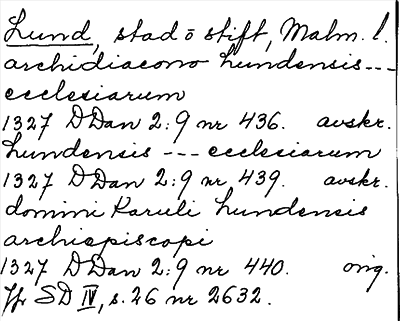 Lund, stad o stift, Malm. l.
archidiacono Lundensis ---
ecclesiarum
1327 DDan 2:9 nr 436. avskr.
Lundensis --- ecclesiarum
1327 DDan 2:9 nr 439. avskr.
domini Karuli Lundensis
archiepiscopi
1327 DDan 2:9 nr 440. orig.
Jfr SD IV, s. 26 nr 2632.